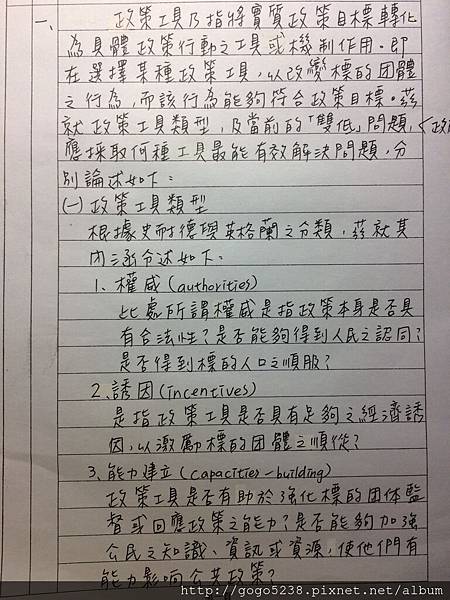 一、 政策工具乃指將實質政策目標轉化
為具體政策行動之工具或機制作用。即
在選擇某種政策工具,以改變標的团體
之行為,而該行為能夠符合政策目標。茲
就政策工具類型,及當前的「雙低」問題,
應採取何種工具最能有效解決問題,分
別論述如下:
(一)政策工具類型
根據史耐德與英格蘭之分類,茲就其
內涵分述如下:
1、權威(authorities)
此處所謂權威是指政策本身是否具
有合法性?是否能夠得到人民之認同?
是否得到標的人口之順服?
2、誘因(incentives)
是指政策工具是否具有足夠之經濟誘
因,以激勵標的团體之順從?
3、能力建立(capacities-building)
政策工具是否有助於強化標的团体監
督或回應政策之能力?是否能夠加強
公民之知識、資訊或資源,使他們有
能力影响公共政策?
http://gogo5238.pixnet.net/album